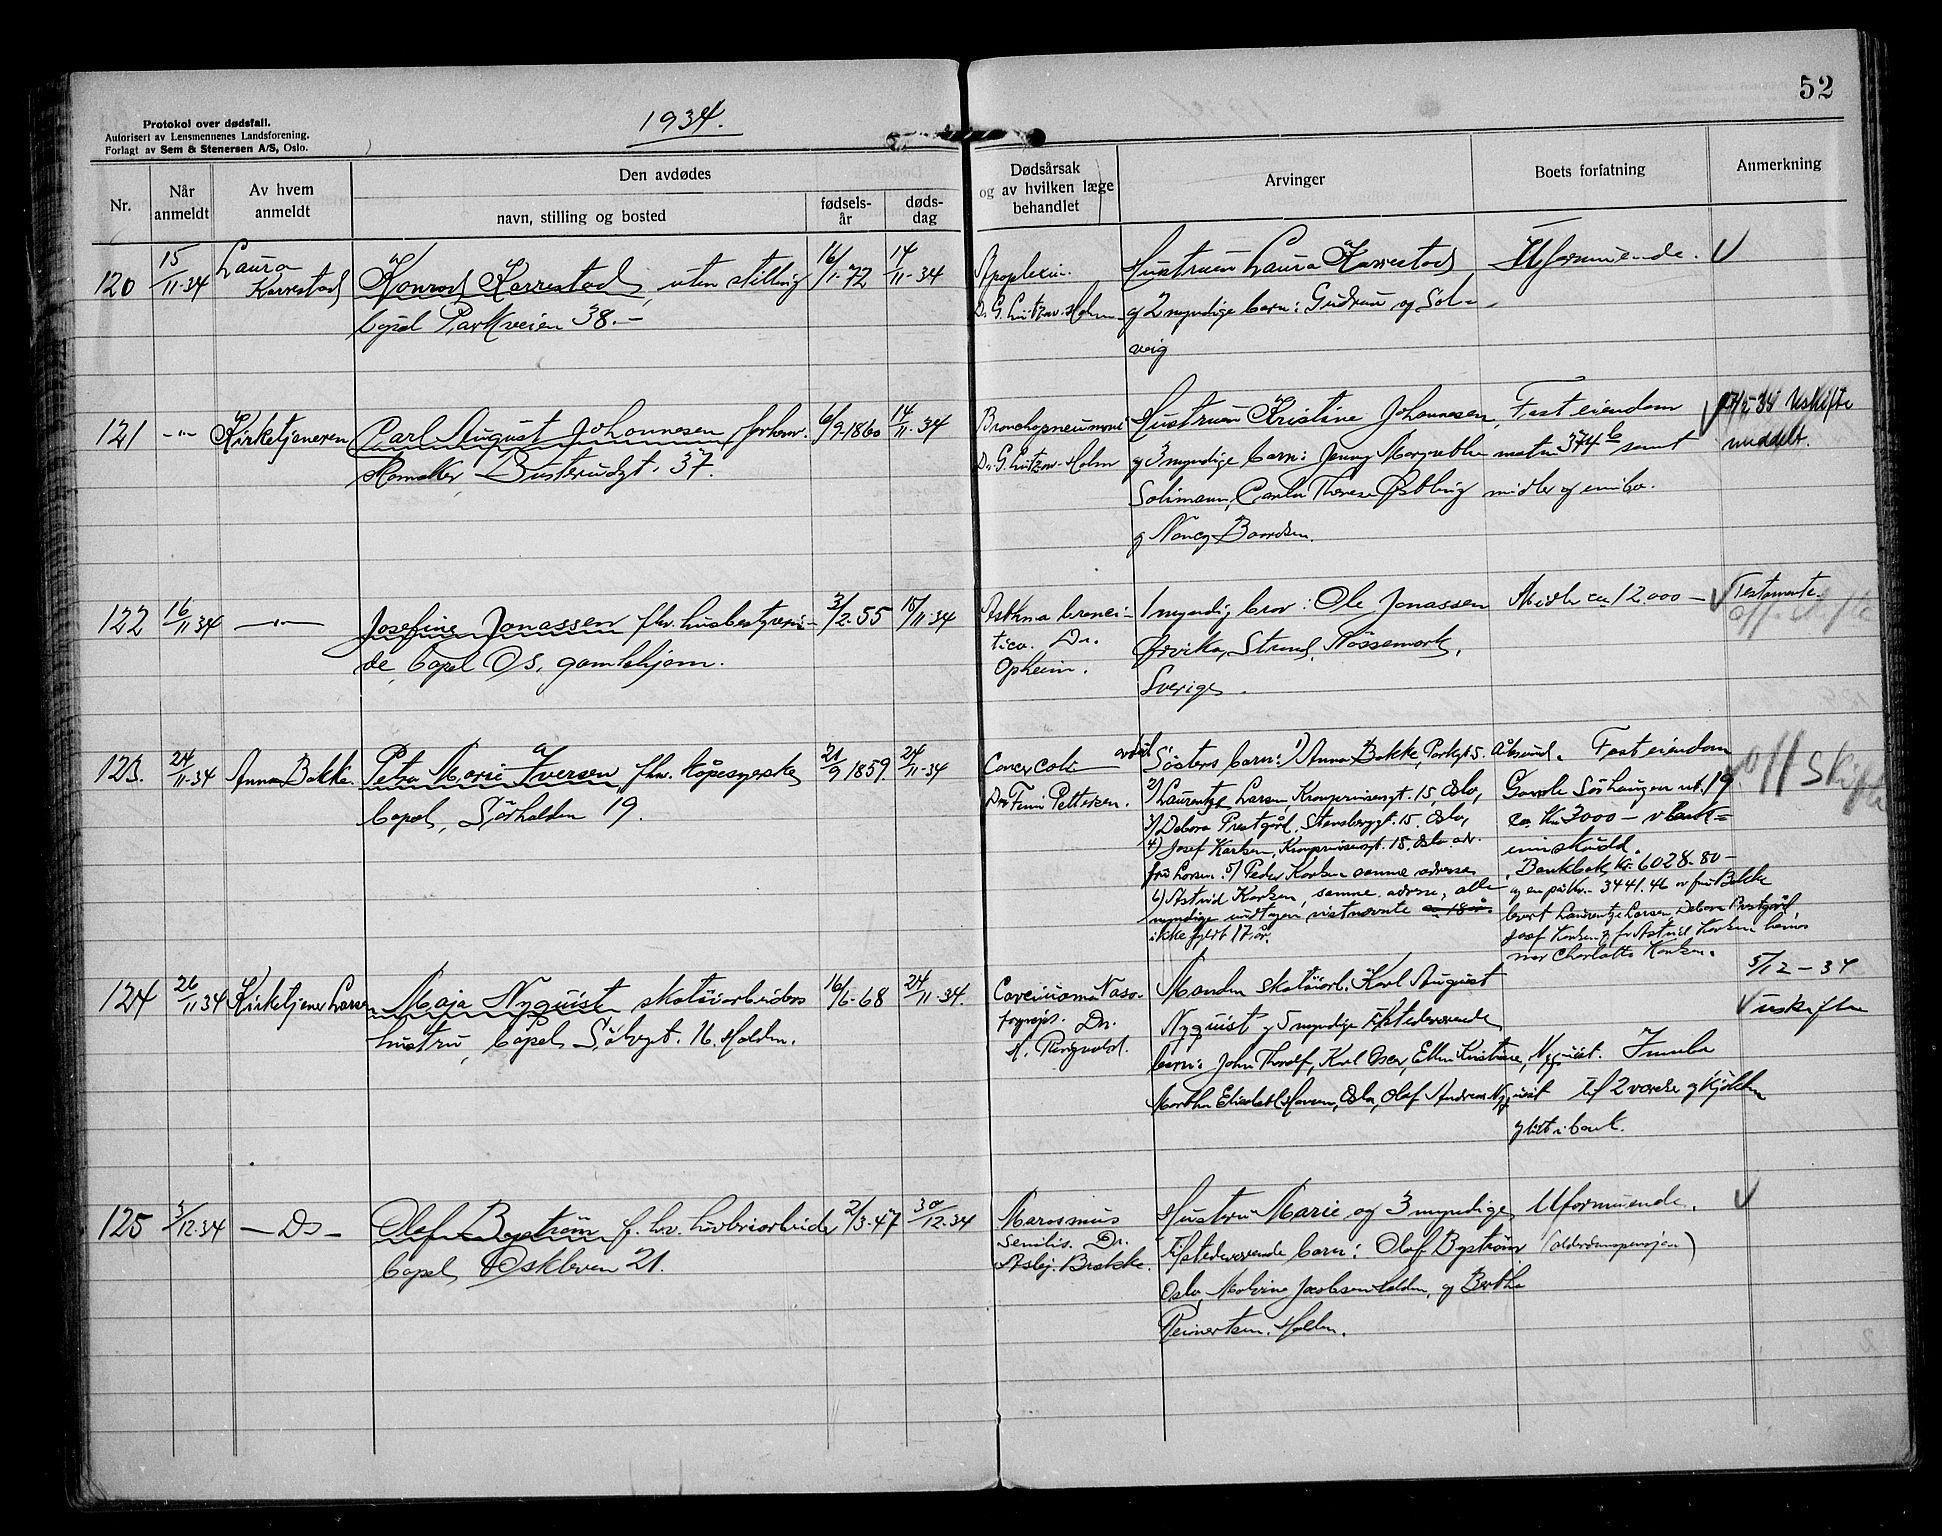 52
1934.
Protokol over dødsfall.
Autorisert av Lensmennenes Landsforening.
Forlagt av Sem & Stenersen A/S, Oslo.
Nr.
Når anmeldt
Av hvem anmeldt
Den avdødes
navn, stilling og bosted
fødsels-år
døds-dag
Dødsårsak og av hvilken læge behandlet
Arvinger
Boets forfatning
Anmerkning
120 15/11-34 Laura Karrestad
Konrad Karrestad, uten stilling 16/1-72 14/11-34
bopel Parkveien 38.-
Apoplexia.
Dr. G. Lützow-Holm
Hustruen Laura Karrestad
og 2 myndige barn: Gudrun og Sol-
veig
Uformuende. V
121 -"- Kirketjeneren
Carl August Johannesen, forhenv. 6/9-1860 14/11-34
Busterudgt. 37.
Bronchopneumoni
Dr. G. Lützow-Holm
Hustruen Kristine Johannesen,
og 3 myndige barn: Jenny Margrethe
Solimann, Carla Therese Østbling
og Nancy Baardsen.
Fast eiendom
matr. 374b samt
midler og innbo.
V Uskifte
meddelt.
122 16/11 34 -"-
Josefine Jonassen fhv. husbestyrerin-
de, bopel Os, gamlehjem.
3/2-55 15/11-34
Asthma bronci-
tica. Dr.
Opheim.
1 myndig bror: Ole Jonassen
Ørvika, Strand, Nössemark,
Sverige.
Midler ca 12.000 -
V Testamente
off. skifte
123. 24/11-34 Anna Bakke.
Petra Marie Iversen fhv. kåpesyerske
bopel, Sörhalden 19.
21/9 1859. 24/11-34
Cancer coli
Dr. Finn Pettersen.
avdöd
Søsters barn: 1) Anna Bakke, Parkgt 5.
2) Laurentze Larsen, Kronprinsensgt. 15, Oslo,
3) Debora Prestgård, Stensberggt. 15. Oslo,
4) Josef Karlsen, Kronprinsensgt. 15, Oslo adr.
fru Larsen. 5) Peder Karlsen samme adresse
6) Astrid Karlsen, samme adresse, alle
myndige undtagen sistnevnte ca. 18 år.
ikke fyldt 17 år.
Fast eiendom
Gamle Sörhaugen nr. 19.
ca. Kr. 3000 - v bank-
innskudd.
Bankbok kr. 6028-80-
og en på kr. 3441.46 av fru Bakke
levert Laurentze Larsen, Debora Prestgård,
Josef Karlsen og for Astrid Karlsen hennes
mor Charlotte Karlsen.
off skifte
124 26/11 34 Kirketjener Larsen
Maja Nyquist skotöiarbeiders
hustru, bopel, Sölvgt. 16. Halden.
16/6-68 24/11-34.
Carcinoma Naso-
Dr.
H. Ringvold.
Manden skotöiarb. Karl August
Nyquist og 5 myndige tilstedeværende
barn: John Thoralf, Karl Oscar, Ellen Kristine, Nyquist.
Martha Elisabeth Hansen, Oslo, Olaf Andreas Nyquist
Innbo
til 2 værelse og kjökken
og litt i bank.
5/12-34
V uskifte
125 3/12-34 - Ds -
Olaf Byström f. hv. lövbriarbeider 2/3-47 30/12-34
bopel, Oskleven 21.
Marasmus
senilis. Dr.
Asbj. Brekke.
Hustru Marie og 3 myndige
tilstedeværende barn: Olaf Byström
Oslo, Malvine Jacobsen Halden, og Bertha
Reinertsen. Halden.
Uformuende.
(alderdomspensjon)
V